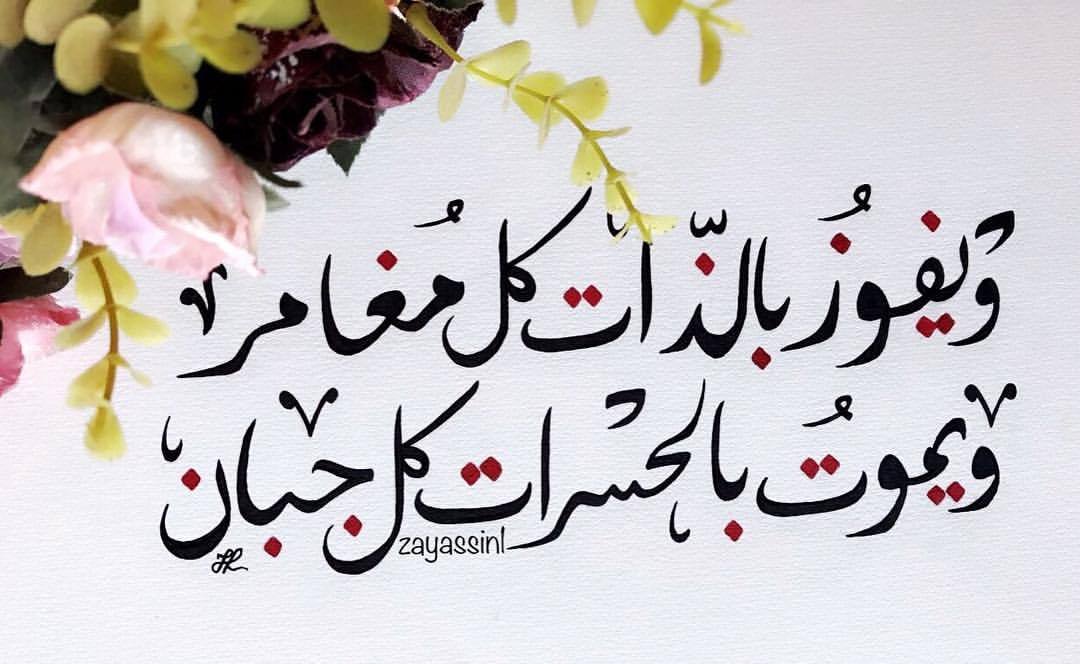 ويفُوزُ بالذّات كل مُغامر
ويموتُ بالحسرات كل جبان
zayassinl